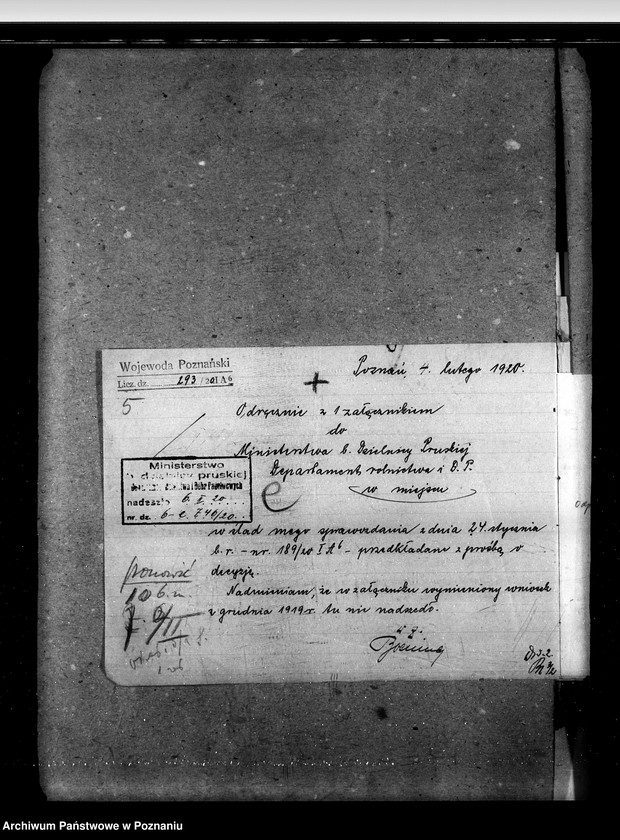 Wojewoda Poznański
Licz. dz. 293/20 I A6
Poznań 4. lutego 1920.
5
Odręcznie z 1 załącznikiem
do
Ministerstwa b. Dzielnicy Pruskiej
Departament rolnictwa i D. P.
w miejscu
Ministerstwo
b. dzielnicy pruskiej
nadeszło 6. II. 20
nr. dz. 6-e
e
w ślad mego sprawozdania z dnia 24. stycznia
b. r. - nr. 189/20 I A6 - przedkładam z prośbą o
decyzję.
Nadmieniam, że w załączniku wymieniony wniosek
z grudnia 1919 r. tu nie nadszedł.
ponowić
Archiwum Państwowe w Poznaniu